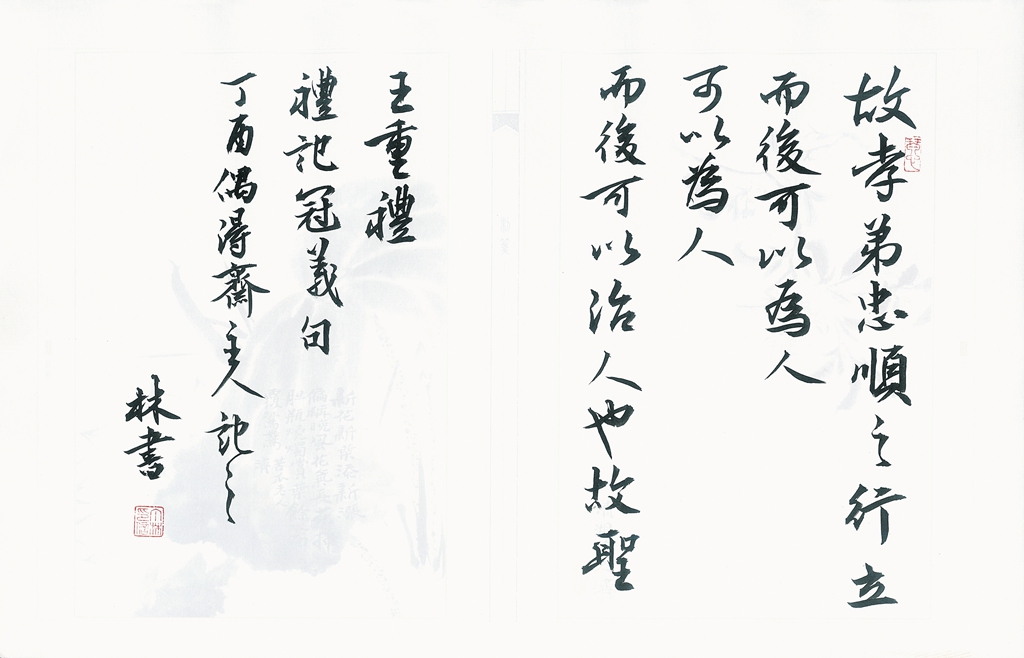 故孝弟忠順之行立
而後可以為人
可以為人
而後可以治人也故聖
王重禮
禮記冠義句
丁酉偶得齋主人記之
林書